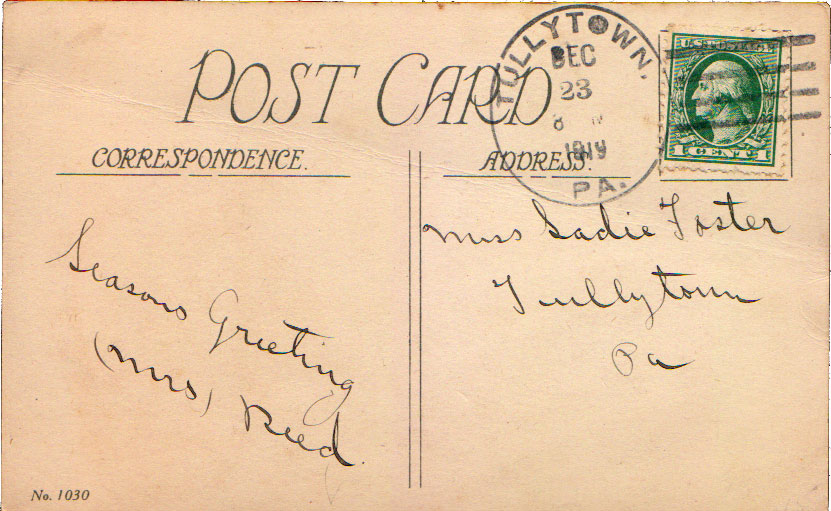 POST CARD
TULLYTOWN, PA.
DEC
23
8
1919
U.S. POSTAGE
1 CENT 1
CORRESPONDENCE.
ADDRESS.
Seasons Greeting
(Mrs) Reed
Miss Sadie Foster
Tullytown
Pa
No. 1030